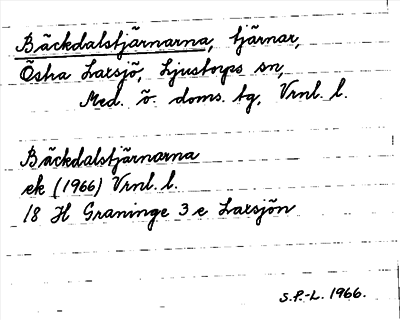 Bäckdalstjärnarna, tjärnar,
Östra Laxsjö, Ljustorps sn,
Med. ö. doms. tg, Vrnl. l.
Bäckdalstjärnarna
ek (1966) Vrnl. l.
18 H Graninge 3 e Laxsjön
S.P.-L. 1966.